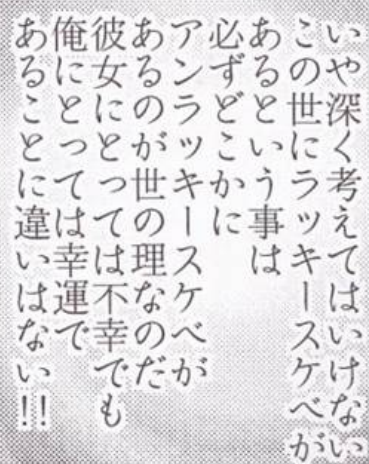 いや深く考えてはいけない
この世にラッキースケベが
あるという事は
必ずどこかに
アンラッキースケベが
あるのが世の理なのだ
彼女にとっては不幸でも
俺にとっては幸運で
あることに違いはない!!